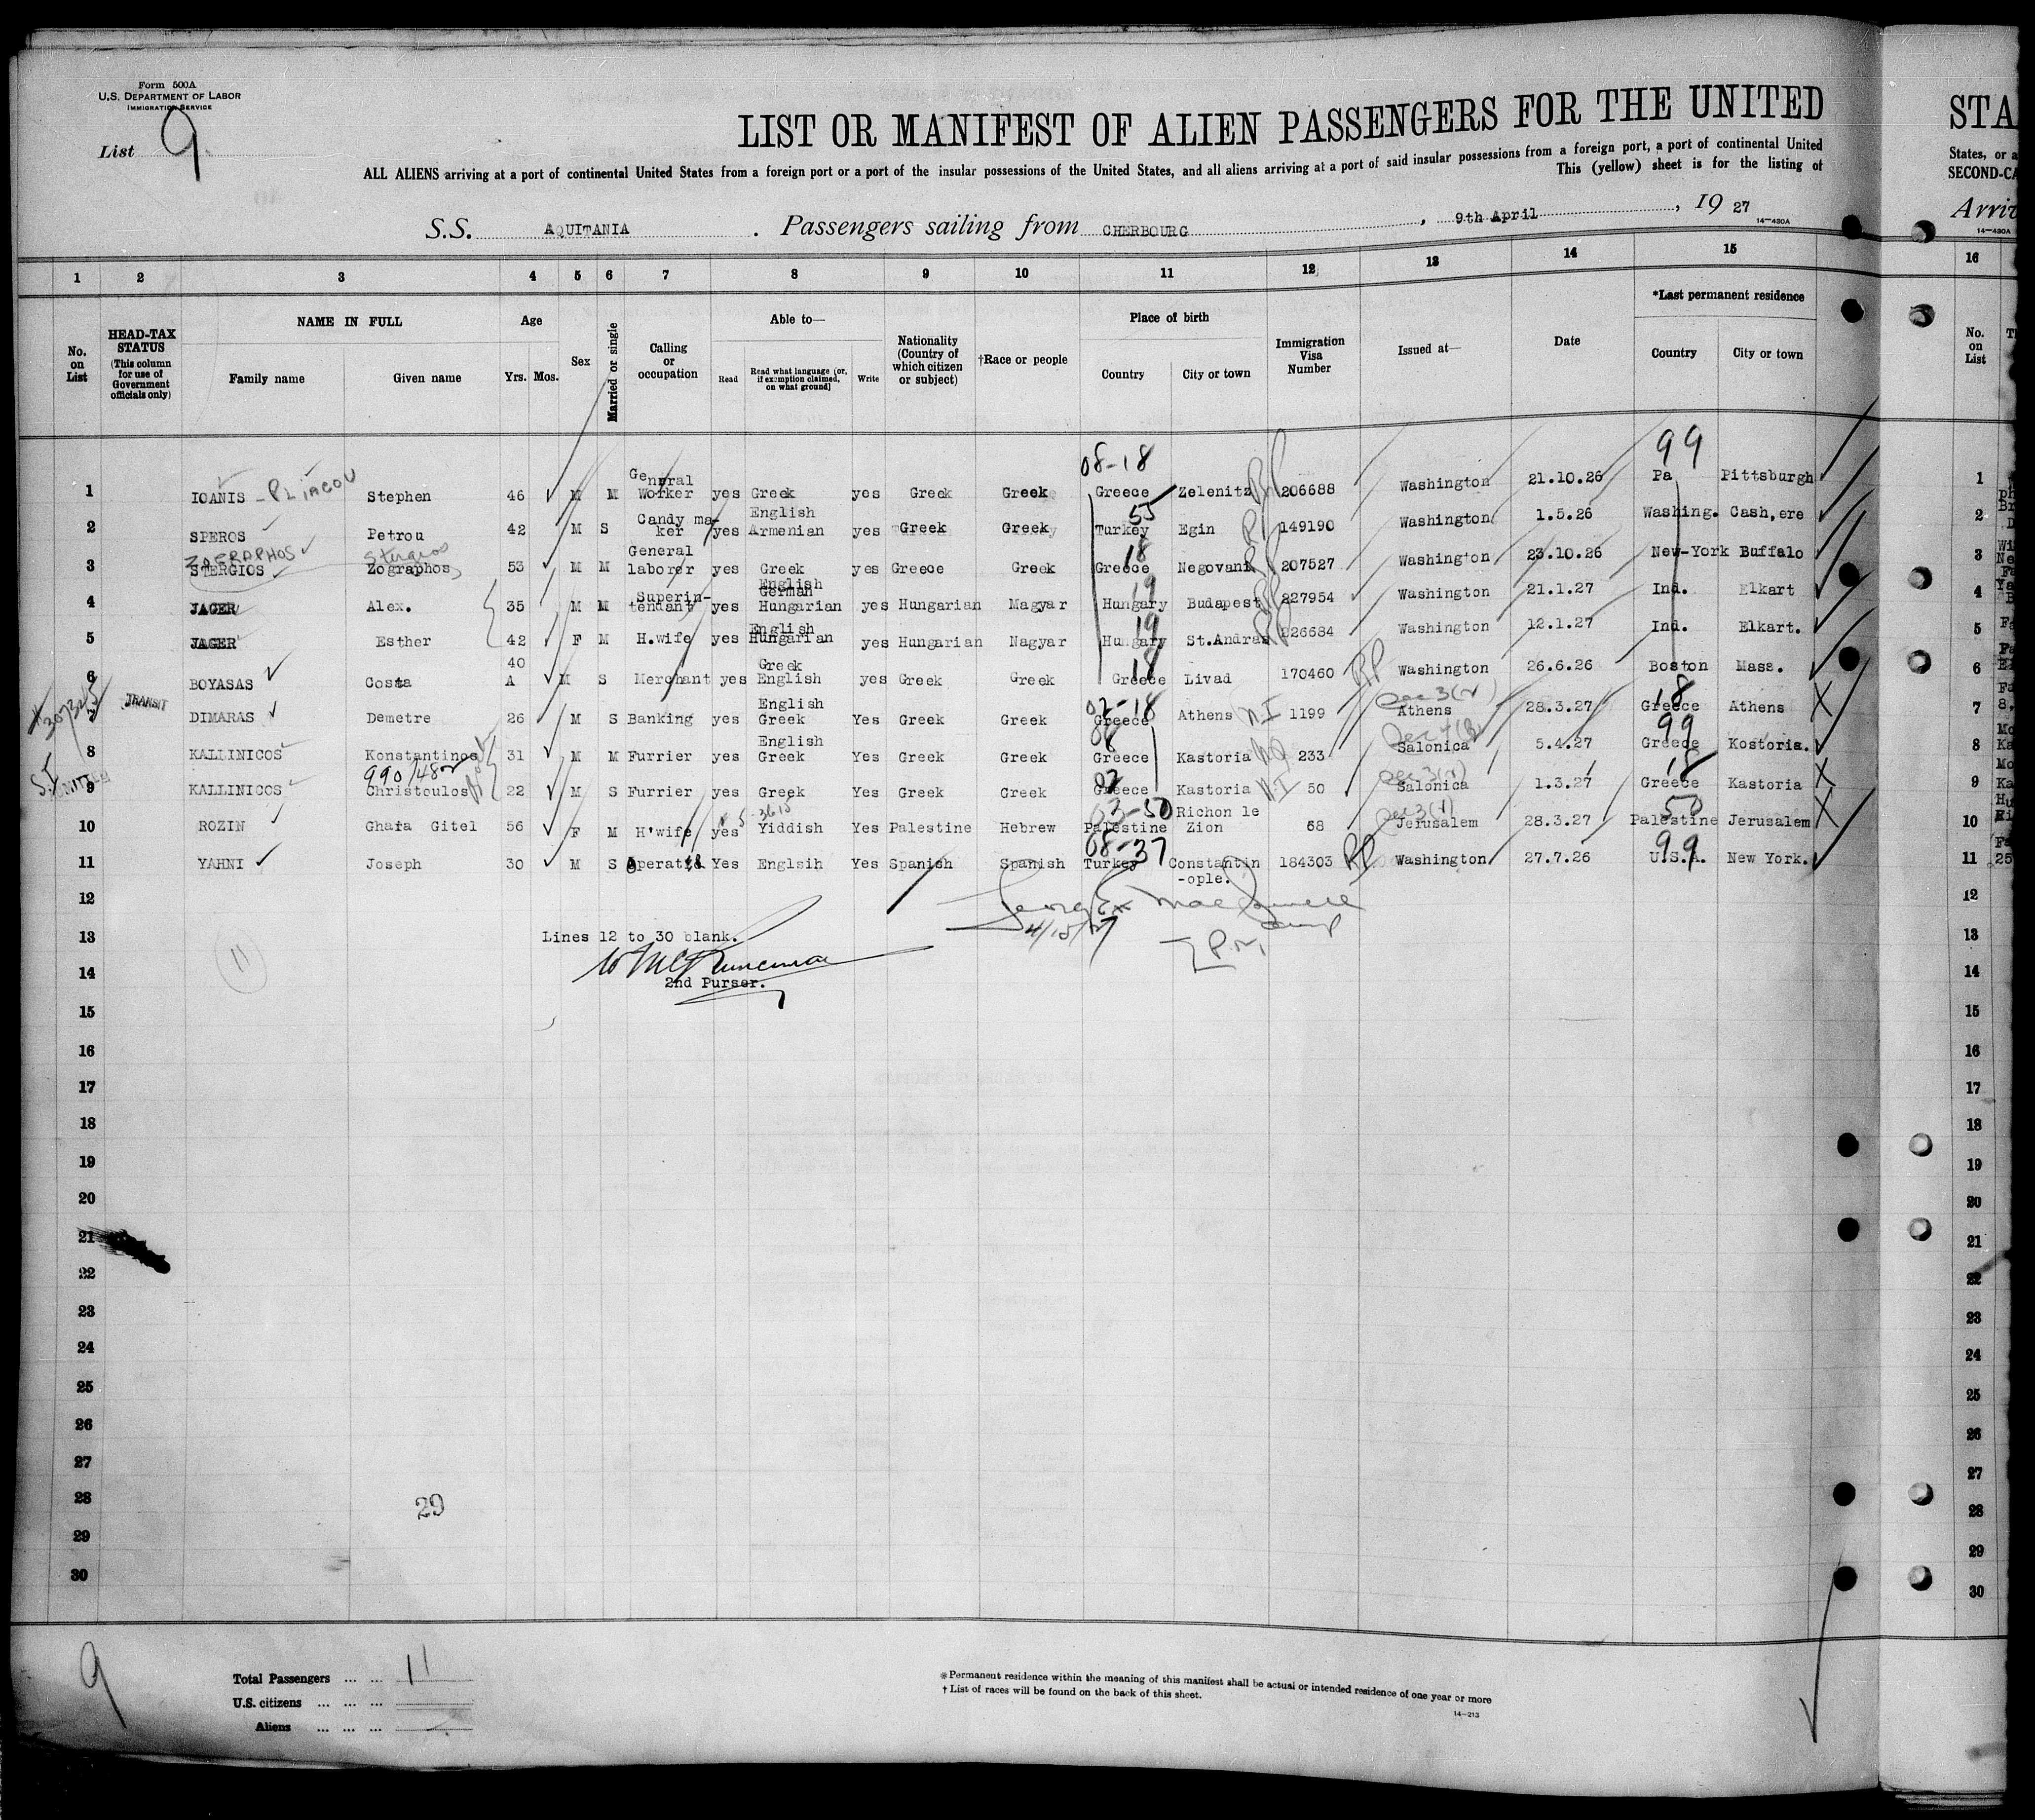 Form 500A
U.S. DEPARTMENT OF LABOR
IMMIGRATION SERVICE
List 9
LIST OR MANIFEST OF ALIEN PASSENGERS FOR THE UNITED
STA
ALL ALIENS arriving at a port of continental United States from a foreign port or a port of the insular possessions of the United States, and all aliens arriving at a port of said insular possessions from a foreign port, a port of continental United
States, or a
This (yellow) sheet is for the listing of
SECOND-CA
S.S. AQUITANIA. Passengers sailing from CHERBOURG, 9th April, 19 27
Arriv
14—430A
14—430A
1 2 3 4 5 6 7 8 9 10 11 12 13 14 15 16
No. on List
HEAD-TAX STATUS (This column for use of Government officials only)
NAME IN FULL
Family name Given name
Age
Yrs. Mos.
Sex
Married or single
Calling or occupation
Able to—
Read
Read what language [or, if exemption claimed, on what ground]
Write
Nationality (Country of which citizen or subject)
†Race or people
Place of birth
Country City or town
Immigration Visa Number
Issued at—
Date
*Last permanent residence
Country City or town
No. on List
08-18 99
1 IOANIS - PLIACOU Stephen 46 M M General Worker yes Greek yes Greek Greek Greece Zelenitz 206688 Washington 21.10.26 Pa Pittsburgh 1
2 SPEROS Petrou 42 M S Candy ma-ker yes English Armenian yes Greek Greek 55 Turkey Egin 149190 Washington 1.5.26 Washing. Cash,ere 2
ZOGRAPHOS Stergios
3 STERGIOS Zographos 53 M M General laborer yes Greek yes Greece Greek 18 Greece Negovani 207527 Washington 23.10.26 New-York Buffalo 3
4 JAGER Alex. 35 M M Superin-tendant yes English German Hungarian yes Hungarian Magyar 19 Hungary Budapest 227954 Washington 21.1.27 Ind. Elkart 4
5 JAGER Esther 42 F M H.wife yes English Hungarian yes Hungarian Nagyar 19 Hungary St.Andras 226684 Washington 12.1.27 Ind. Elkart. 5
6 BOYASAS Costa 40 A M S Merchant yes Greek English yes Greek Greek 18 Greece Livad 170460 RP Washington 26.6.26 Boston Mass. 6
7 TRANSIT DIMARAS Demetre 26 M S Banking yes English Greek Yes Greek Greek 02-18 Greece Athens N.I 1199 Athens 28.3.27 18 Greece Athens X 7
8 KALLINICOS Konstantinos 31 M M Furrier yes English Greek Yes Greek Greek 08 Greece Kastoria 233 Salonica 5.4.27 99 Greece Kostoria. 8
990/482
S.I 9 KALLINICOS Christoulos 22 M S Furrier yes Greek Yes Greek Greek 02 Greece Kastoria N.I 50 Salonica 1.3.27 18 Greece Kastoria X 9
10 ROZIN Ghaia Gitel 56 F M H'wife yes Yiddish Yes Palestine Hebrew 03-50 Palestine Richon le Zion 68 Jerusalem 28.3.27 50 Palestine Jerusalem X 10
11 YAHNI Joseph 30 M S Operatis Yes Englsih Yes Spanish Spanish 08-37 Turkey Constantin-ople. 184303 RP Washington 27.7.26 99 U.S.A. New York. 11
12 12
4/15/27
13 Lines 12 to 30 blank. 13
11
14 2nd Purser. 14
15 15
16 16
17 17
18 18
19 19
20 20
21 21
22 22
23 23
24 24
25 25
26 26
27 27
28 29 28
29 29
30 30
9
Total Passengers ... ... 11
U.S. citizens ... ... ...
Aliens ... ... ...
*Permanent residence within the meaning of this manifest shall be actual or intended residence of one year or more
† List of races will be found on the back of this sheet.
14—213